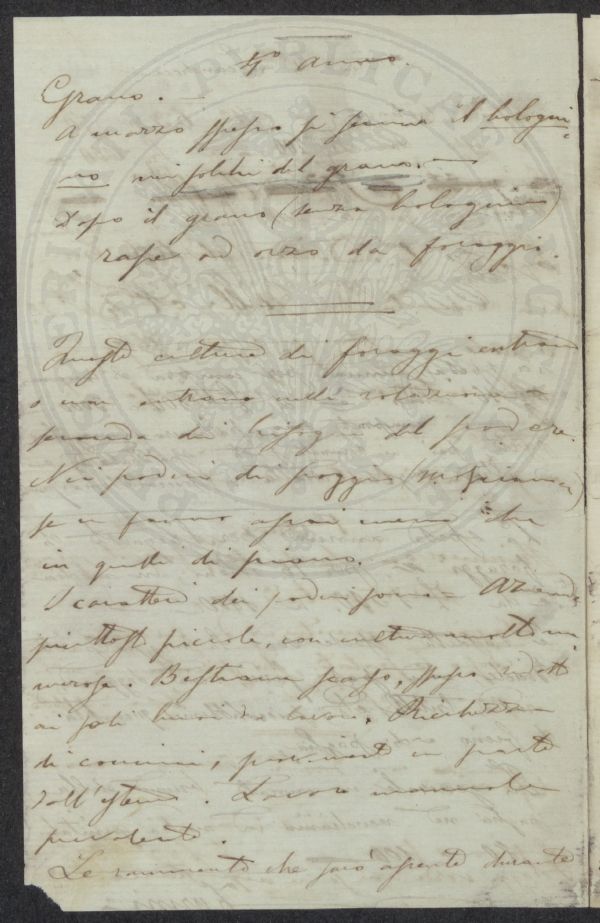 4º anno.
Grano. —
A marzo spesso si semina il bologni=
no nei solchi del grano. —
Dopo il grano (senza bolognino)
rape ad orzo da foraggi.
Queste culture di foraggi entrano
o non entrano nella rotazione a
seconda dei bisogni del podere.
Nei poderi di poggio (Mosciano)
se ne fanno assai meno che
in quelli di piano.
I caratteri dei poderi sono — Aziende
piuttosto piccole, con culture molto nu
merose. Bestiame scarso, spesso ridotto
ai soli buoi da lavoro. Ricchezza
di concimi, provenienti in parte
dall'esterno. Lavoro manuale
prevalente.
Le rammento che sarò assente durante